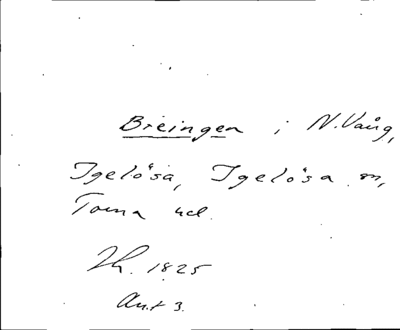 Breingen i N. Vång,
Igelösa, Igelösa sn,
Torna hd.
1825